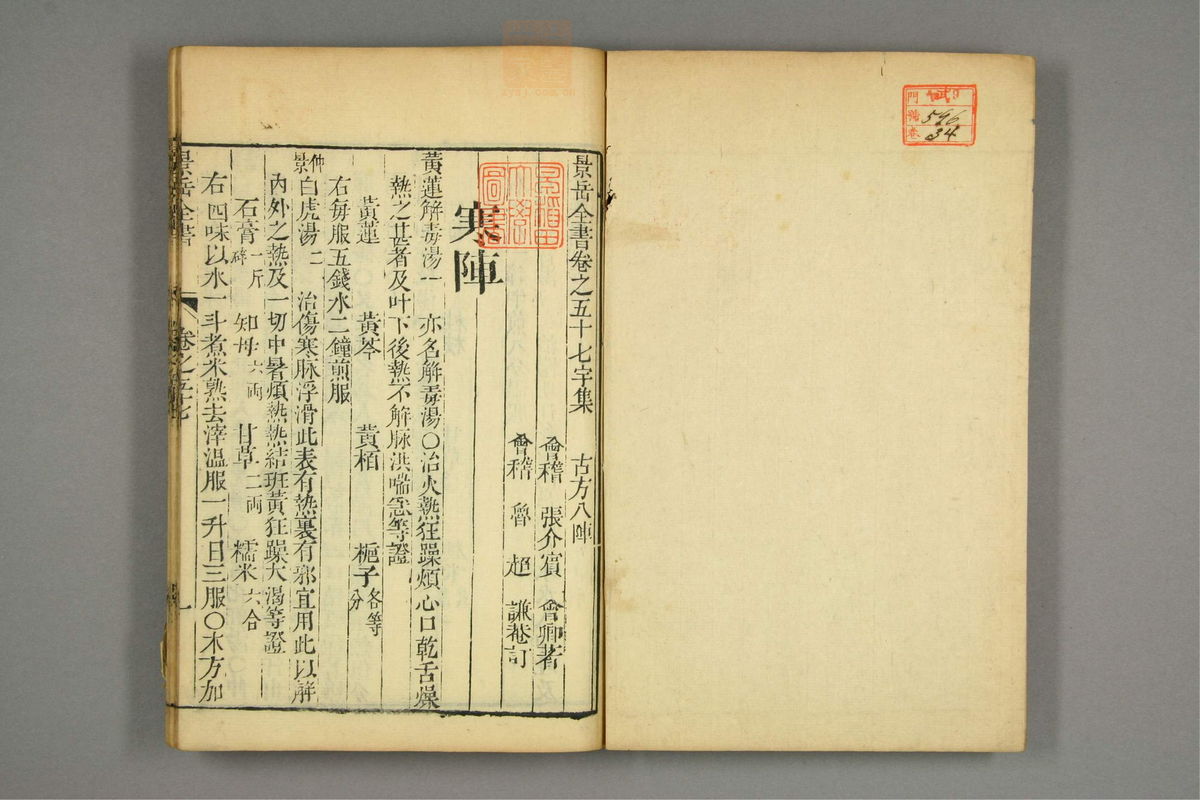 景岳全書卷之五十七字集　古方八陣
會稽　張介賓　會卿著
會稽　魯　超　謙菴訂
寒陣
黃蓮解毒湯一　亦名解毒湯○治火熱狂躁煩心口乾舌燥
熱之甚者及吐下後熱不解脉洪喘急等證
黃蓮　黃芩　黃栢　梔子各等分
右每服五錢水二鐘煎服
仲景白虎湯二　治傷寒脉浮滑此表有熱裏有邪宜用此以解
內外之熱及一切中暑煩熱熱結班黃狂躁大渴等證
石膏一斤碎　知母六両　甘草二両　糯米六合
右四味以水一斗煮米熟去滓溫服一升日三服○木方加
景岳全書
卷之五十七
一
門
號 596
卷 34